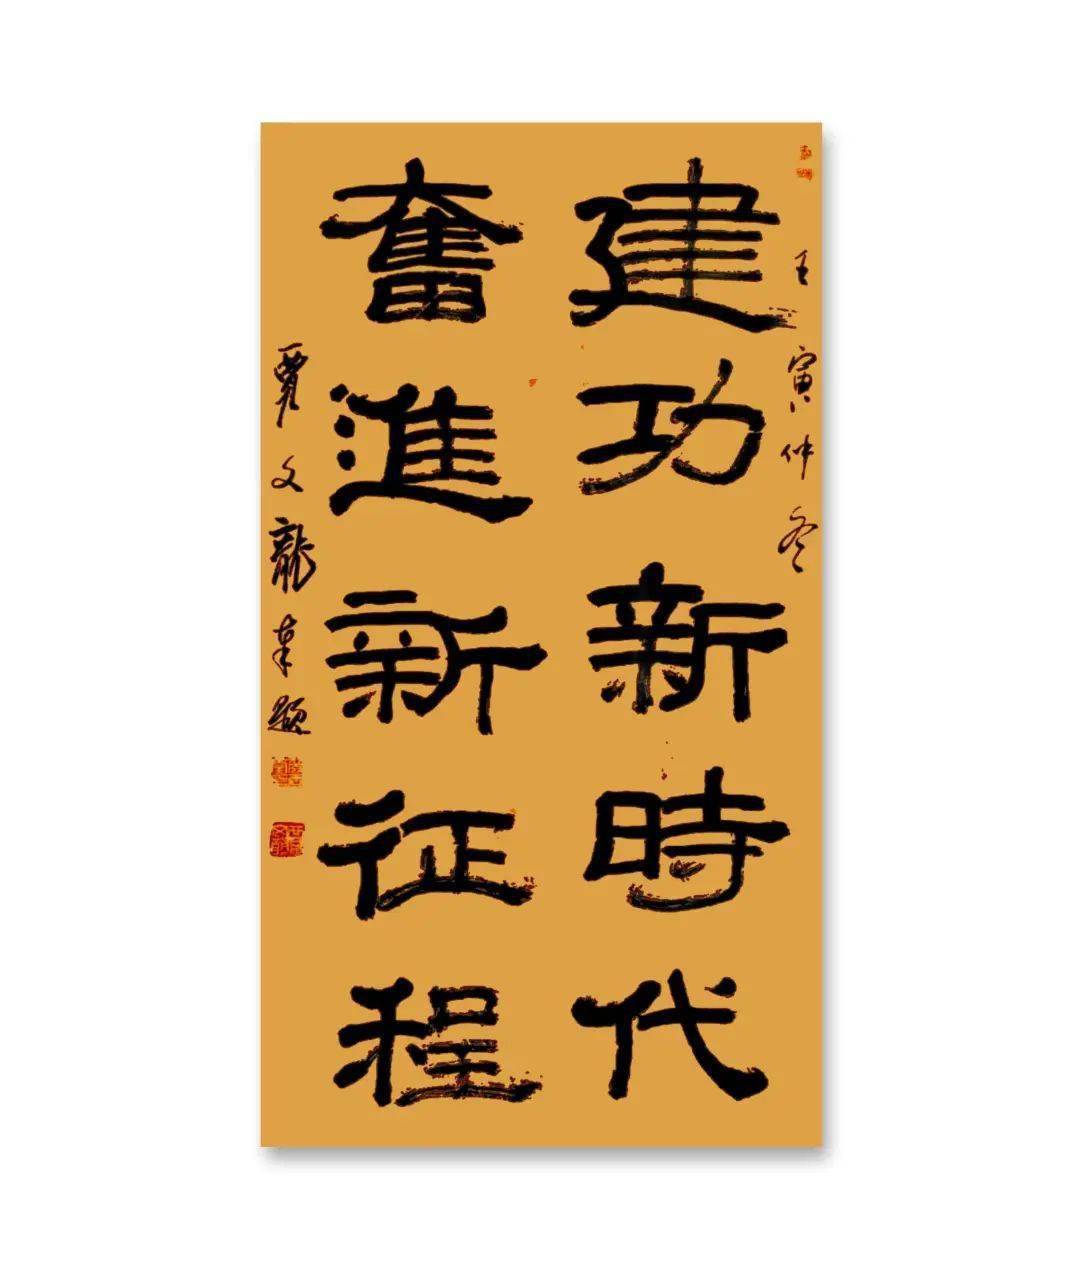 壬寅仲冬
建功新時代
奮進新征程
賈文龍題